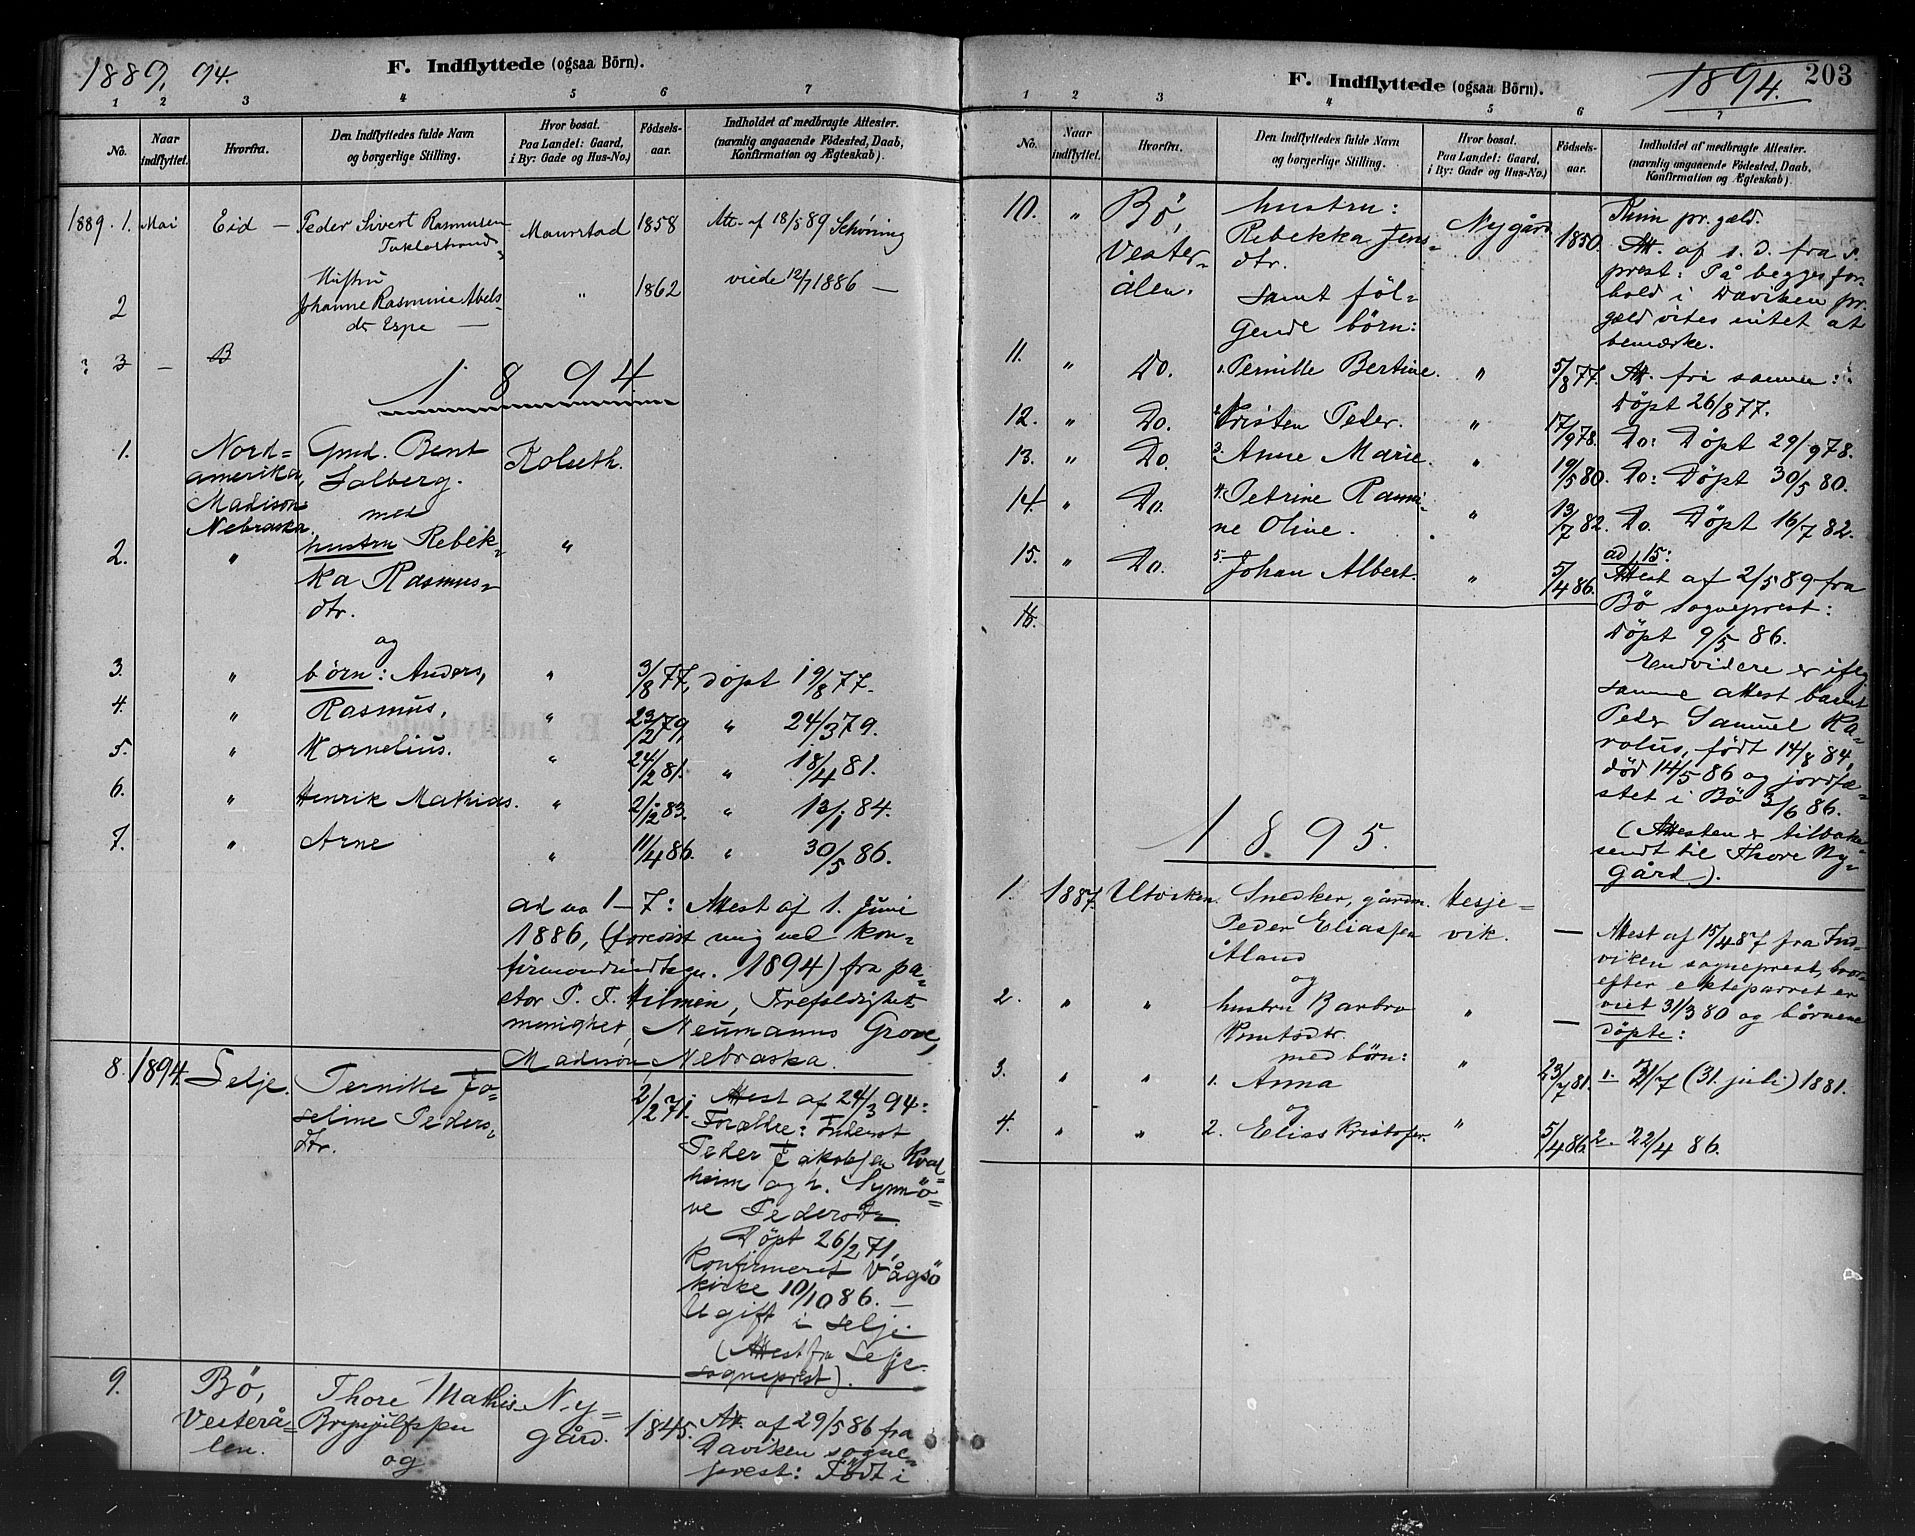 1889, 94.
F. Indflyttede (ogsaa Börn).
1 2 3 4 5 6 7
No.
Naar indflyttet.
Hvorfra.
Den Indflyttedes fulde Navn
og borgerlige Stilling.
Hvor bosat.
Paa Landet: Gaard,
i By: Gade og Hus-No.)
Födsels-
aar.
Indholdet af medbragte Attester.
(navnlig angaaende Födested, Daab,
Konfirmation og Ægteskab).
1889. 1. Mai Eid — Peder Sivert Rasmussen Maurstad 1858 Att. af 18/5 89 Schøning
2 Hustru
Johanne Rasmine Abels- " 1862 viede 12/7 1886 —
dr Espe —
3 — B
1894.
1. Nord= Gmd. Bent Kolseth.
amerika, Solberg.
Madison med
Nebraska.
2. " hustru Rebek- "
ka Rasmus-
dtr.
og
3. " börn: Anders, " 3/8 77, döpt 19/8 77.
4. " Rasmus, " 23/2 79, " 24/3 79.
5. " Kornelius. " 24/2 81. " 18/4 81.
6. " Henrik Mathias. " 2/12 83. " 13/1 84.
7. " Arne " 11/4 86. " 30/5 86.
ad no 1–7: Attest af 1. Juni
1886, (forevist mig ved kon-
firmandindtegn. 1894) fra pa-
stor P. F. Hilmen, Trefoldighet
menighet, Neumanns Grove,
Madison, Nebraska.
8. 1894. Selje. Pernille Jo- 2/2 71. Attest af 24/3 94:
seline Peders- Forældre: Inderst
dtr. Peder Jakobsen Kval-
heim og h. Synnö-
ve Pedersdtr.
Döpt 26/2 71,
Konfirmeret Vågsö
kirke 10/10 86. —
Ugift i Selje
(Attest fra Selje
sogneprest).
9. Bö, Thore Mathis Ny= 1845. Att. af 29/5 86 fra
Vesterå- Brynjulfsen gård. Daviken sogne-
len. og prest: Födt i
F. Indflyttede (ogsaa Börn).
1894. 203
1 2 3 4 5 6 7
No.
Naar indflyttet.
Hvorfra.
Den Indflyttedes fulde Navn
og borgerlige Stilling.
Hvor bosat.
Paa Landet: Gaard,
i By: Gade og Hus-No.)
Födsels-
aar.
Indholdet af medbragte Attester.
(navnlig angaaende Födested, Daab,
Konfirmation og Ægteskab).
10. " Bö, hustru: Nygård 1850. pr. gæld.
Vester- Rebekka Jens- Att. af s. d. fra s.
ålen. dtr. prest: På begges for-
samt föl- hold i Daviken pr.
gende börn: gæld vites intet at
bemærke.
11. " Do. 1. Pernille Bertine. " 5/8 77. Att. fra samme:
Döpt 26/8 77.
12. " Do. 2. Kristen Peder. " 17/9 78. Do: Döpt 29/9 78.
13. " Do. 3. Anne Marie. " 19/5 80. Do: Döpt 30/5 80.
14. " Do. 4. Petrine Rasmi- " 13/7 82. Do. Döpt 16/7 82.
ne Oline.
15. " Do. 5. Johan Albert. " 5/4 86. ad 15:
Attest af 2/5 89 fra
16. Bö sogneprest:
Döpt 9/5 86.
Endvidere er ifölg
samme attest barnet
Peder Samuel Ka-
rolus, født 14/8 84,
död 14/5 86 og jordfæ-
stet i Bö 3/6 86.
(Attesten er tilbake-
sendt til Thore Ny-
gård).
1895.
1. 1887. Utviken. Snedker, gårdm. Hesje- — Attest af 15/4 87 fra Ind-
Peder Eliassen vik. viken sogneprest, hvor-
Åland efter ekteparret er
og viet 31/3 80 og börnene
döpte:
2. " " hustru Barbro " —
Knutsdtr.
med börn:
3. " " 1. Anna " 23/7 81. 1. 31/7 (31. juli) 1881.
og
4. " " 2. Elias Kristofer. " 5/4 86. 2. 22/4 86.